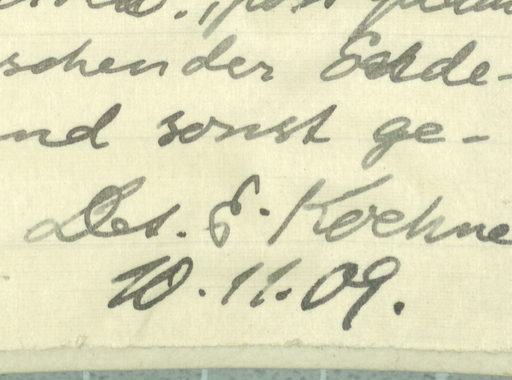 schender Erde-
nd sonst ge-
Des. E. Koehne
10.11.09.